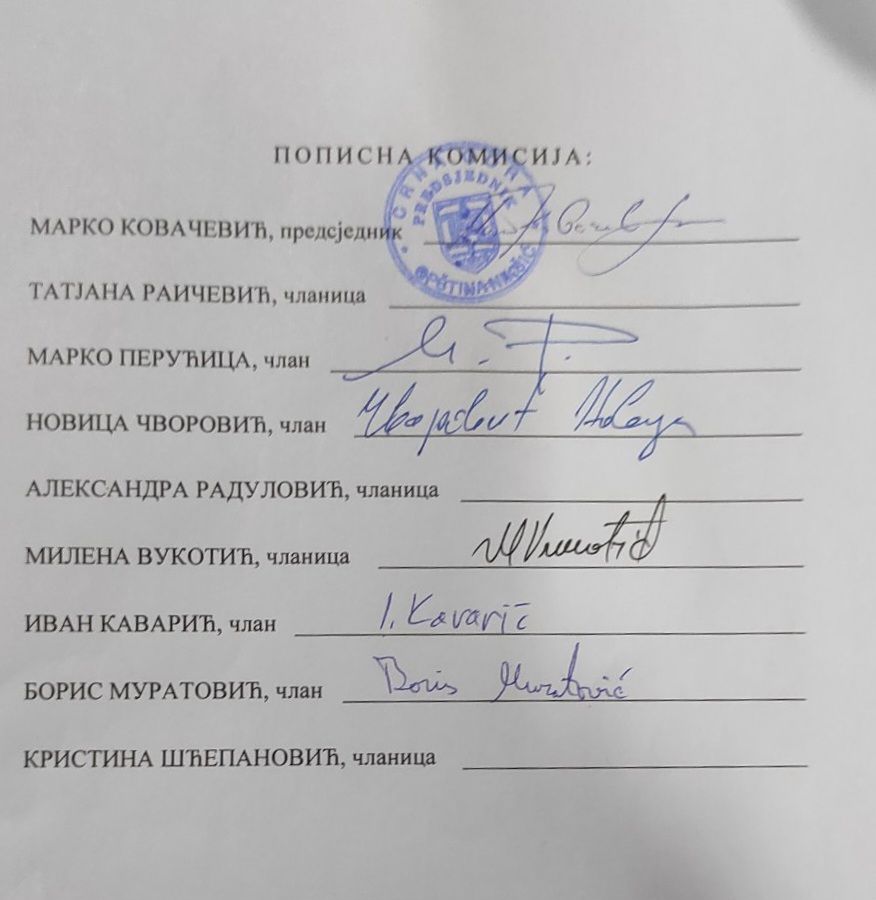 ПОПИСНА КОМИСИЈА:
CRNA GORA
PREDSJEDNIK
OPŠTINA NIKŠIĆ
МАРКО КОВАЧЕВИЋ, предсједник
ТАТЈАНА РАИЧЕВИЋ, чланица
МАРКО ПЕРУЋИЦА, члан
НОВИЦА ЧВОРОВИЋ, члан Чворовић Новица
АЛЕКСАНДРА РАДУЛОВИЋ, чланица
МИЛЕНА ВУКОТИЋ, чланица MVukotić
ИВАН КАВАРИЋ, члан I. Kavarić
БОРИС МУРАТОВИЋ, члан Boris Muratović
КРИСТИНА ШЋЕПАНОВИЋ, чланица